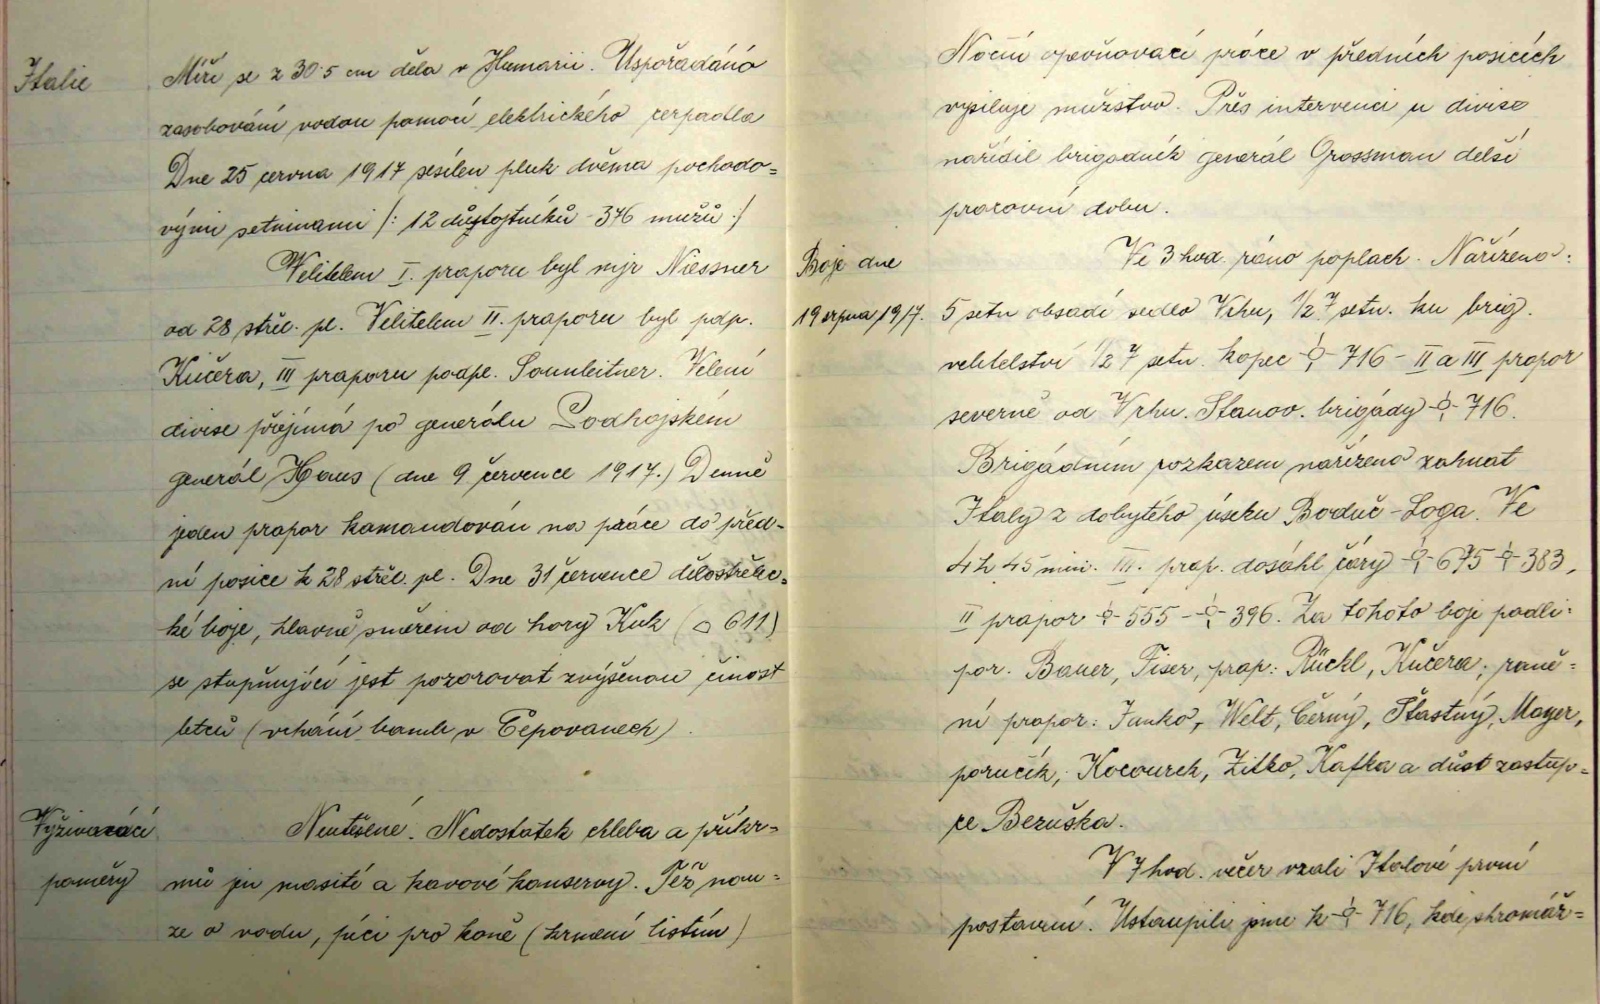 Italie
Míří se z 30·5 cm děla v Humarii. Uspořádáno
zasobování vodou pomocí elektrického čerpadla
Dne 25 června 1917 sesílen pluk dvěma pochodo=
vými setninami /: 12 důstojníků - 346 mužů :/
Velitelem I. praporu byl mjr Niessner
od 28 střel. pl. Velitelem II. praporu byl pdp.
Kučera, III praporu podpl. Sonnleitner. Velení
divise přejímá po generálu Podhajském
generál Haus (dne 9 července 1917.) Denně
jeden prapor komandován na práce do před-
ní posice k 28 střel. pl. Dne 31 července dělostřelec=
ké boje, hlavně směrem od hory Kuk (▵ 611)
se stupňující jest pozorovat zvýšenou činost
letců (vrhání bomb v Čepovanech).
Vyživovací
poměry
Neutěšené. Nedostatek chleba a příkr=
mů jen masité a kavové konservy. Též nou=
ze o vodu, píci pro koně (krmení listím)
Noční opevňovací práce v předních posicích
vysiluje mužstvo. Přes intervenci u divise
nařídil brigadník generál Grossman delší
pracovní dobu.
Boje dne
19 srpna 1917.
Ve 3 hod. ráno poplach. Nařízeno:
5 setn obsadí sedlo Vrhu, 1/2 7 setn. ku brig.
velitelství 1/2 7 setn. kopec -ỏ- 716 - II a III prapor
severně od Vrhu. Stanov. brigády -ỏ- 716.
Brigádním rozkazem nařízeno zahnat
Italy z dobytého úseku Bodrč - Loga. Ve
4 h 45 min. III. prap. dosáhl čáry -ỏ- 675 -ỏ- 383,
II prapor -ỏ- 555 - -ỏ- 396. Za tohoto boje padli:
por. Bauer, Fiser, prap: Rückl, Kučera; raně=
ní prapor: Janko, Welt, Černý, Šťastný, Mayer,
poručík; Kocourek, Zitko, Kafka a důst zastup=
ce Bezuška.
V 7 hod. večer vzali Italové první
postavení. Ustoupili jsme k -ỏ- 716, kde shromáž=